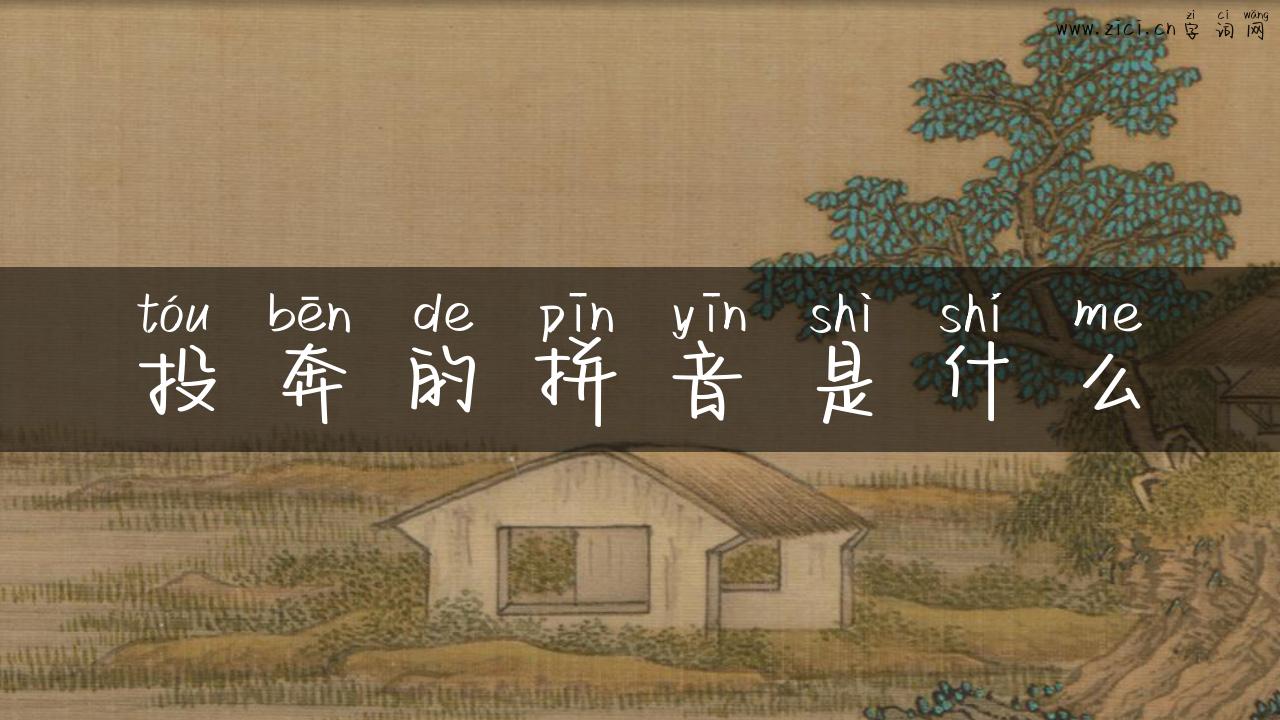 zì cí wǎng
www.zici.cn 字 词 网
tóu bēn de pīn yīn shì shí me
投 奔 的 拼 音 是 什 么